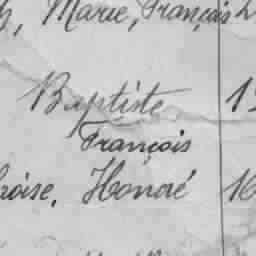 Marie, François
Baptiste
François
oise, Honoré 16